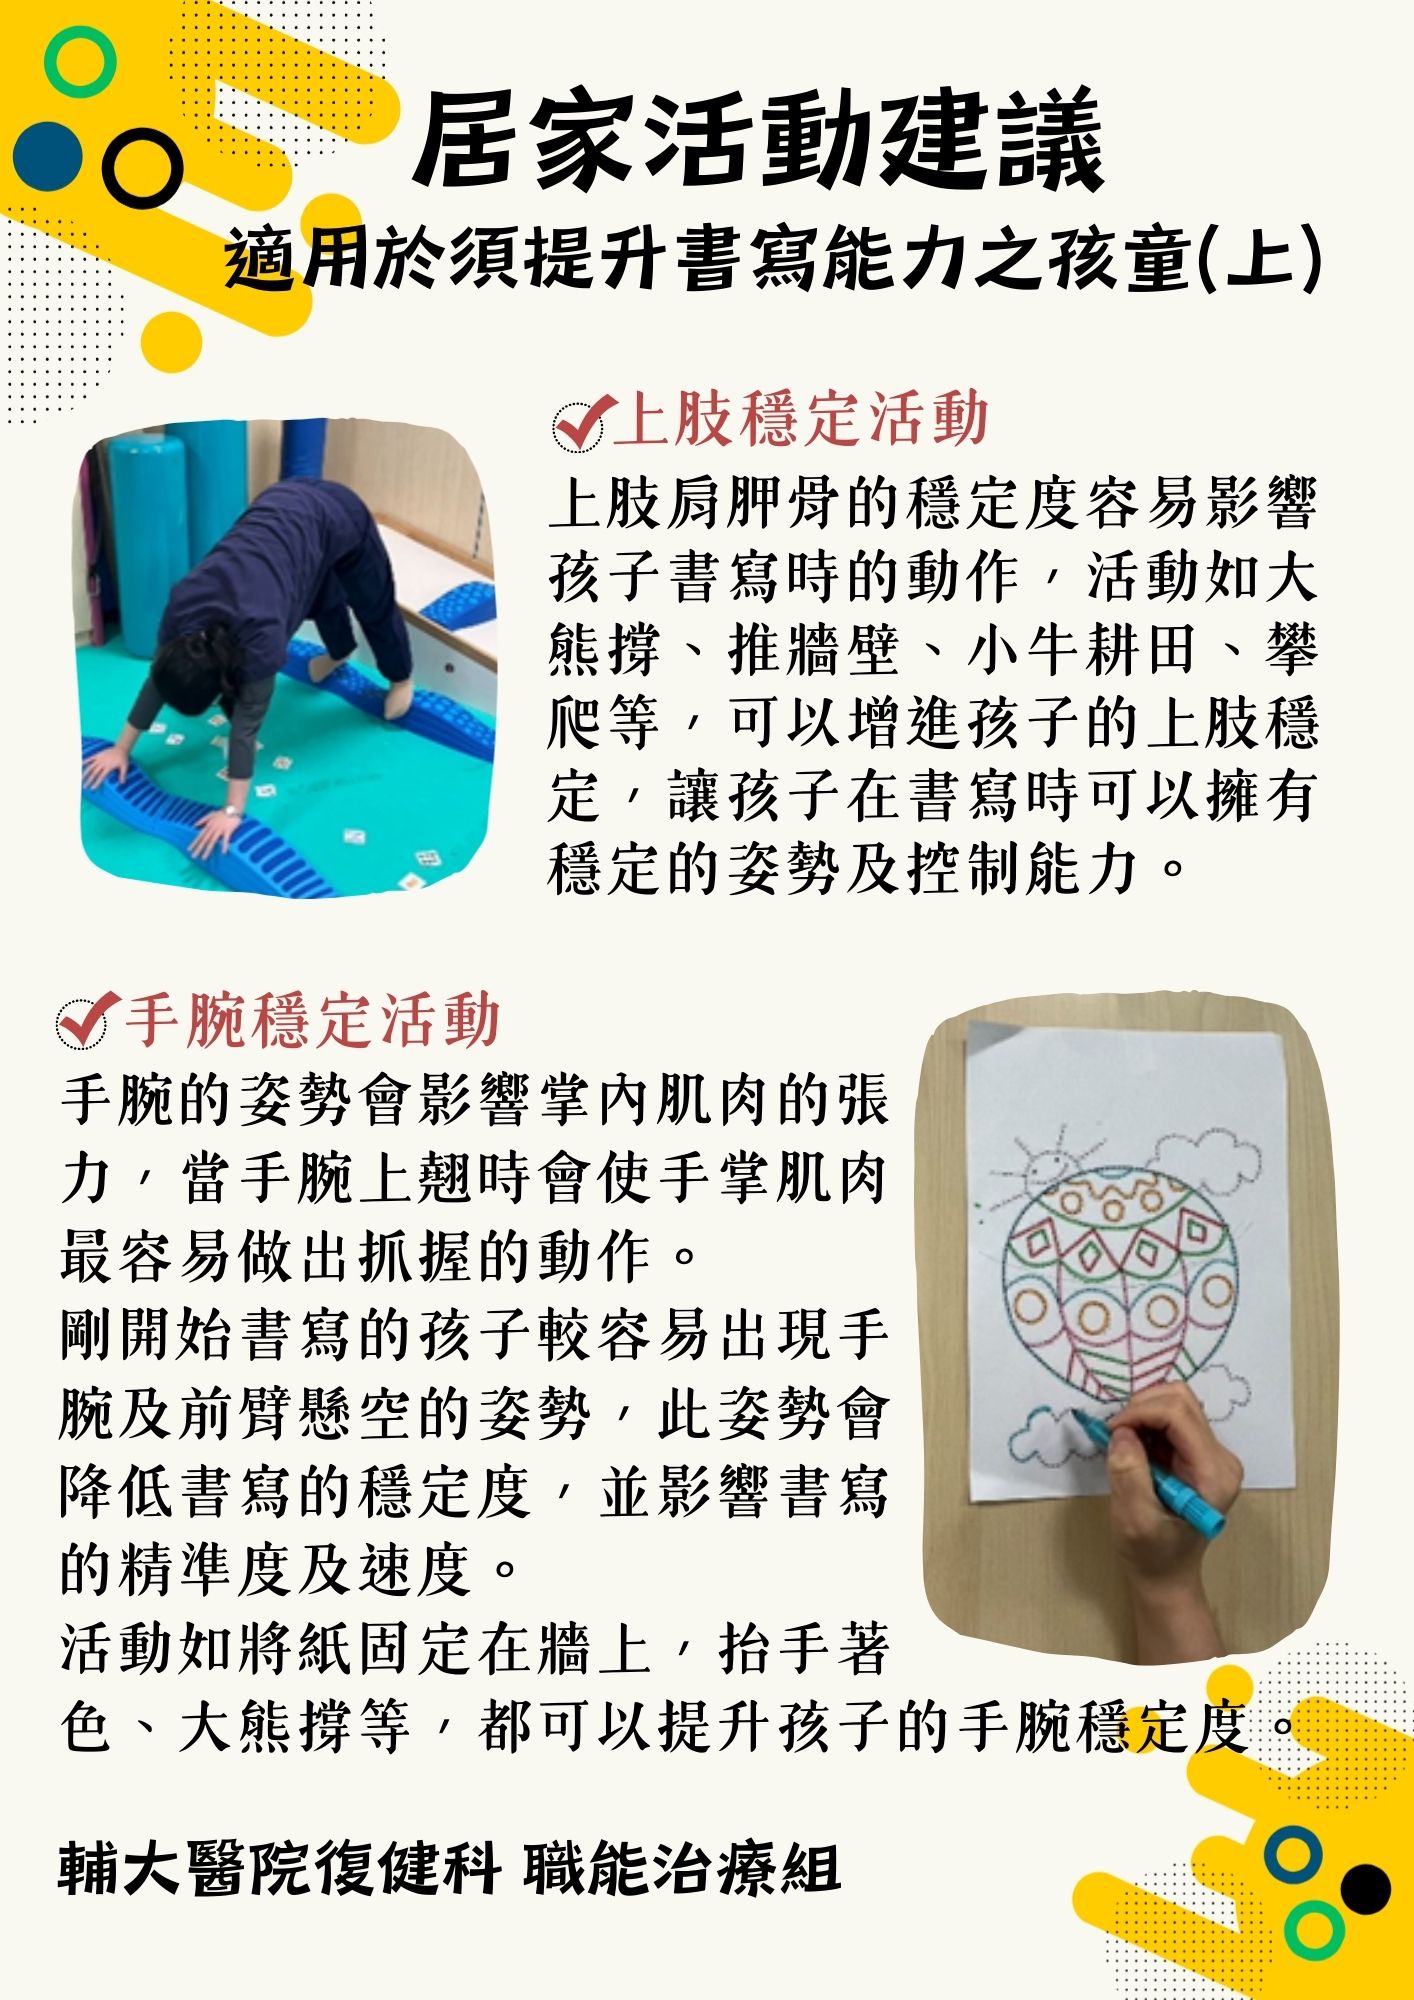 居家活動建議
適用於須提升書寫能力之孩童(上)
上肢穩定活動
上肢肩胛骨的穩定度容易影響
孩子書寫時的動作，活動如大
熊撐、推牆壁、小牛耕田、攀
爬等，可以增進孩子的上肢穩
定，讓孩子在書寫時可以擁有
穩定的姿勢及控制能力。
手腕穩定活動
手腕的姿勢會影響掌內肌肉的張
力，當手腕上翹時會使手掌肌肉
最容易做出抓握的動作。
剛開始書寫的孩子較容易出現手
腕及前臂懸空的姿勢，此姿勢會
降低書寫的穩定度，並影響書寫
的精準度及速度。
活動如將紙固定在牆上，抬手著
色、大熊撐等，都可以提升孩子的手腕穩定度。
輔大醫院復健科 職能治療組